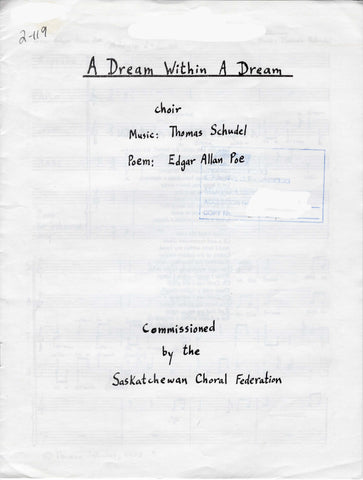 2-119
A Dream Within A Dream
choir
Music: Thomas Schudel
Poem: Edgar Allan Poe
Commissioned
by the
Saskatchewan Choral Federation